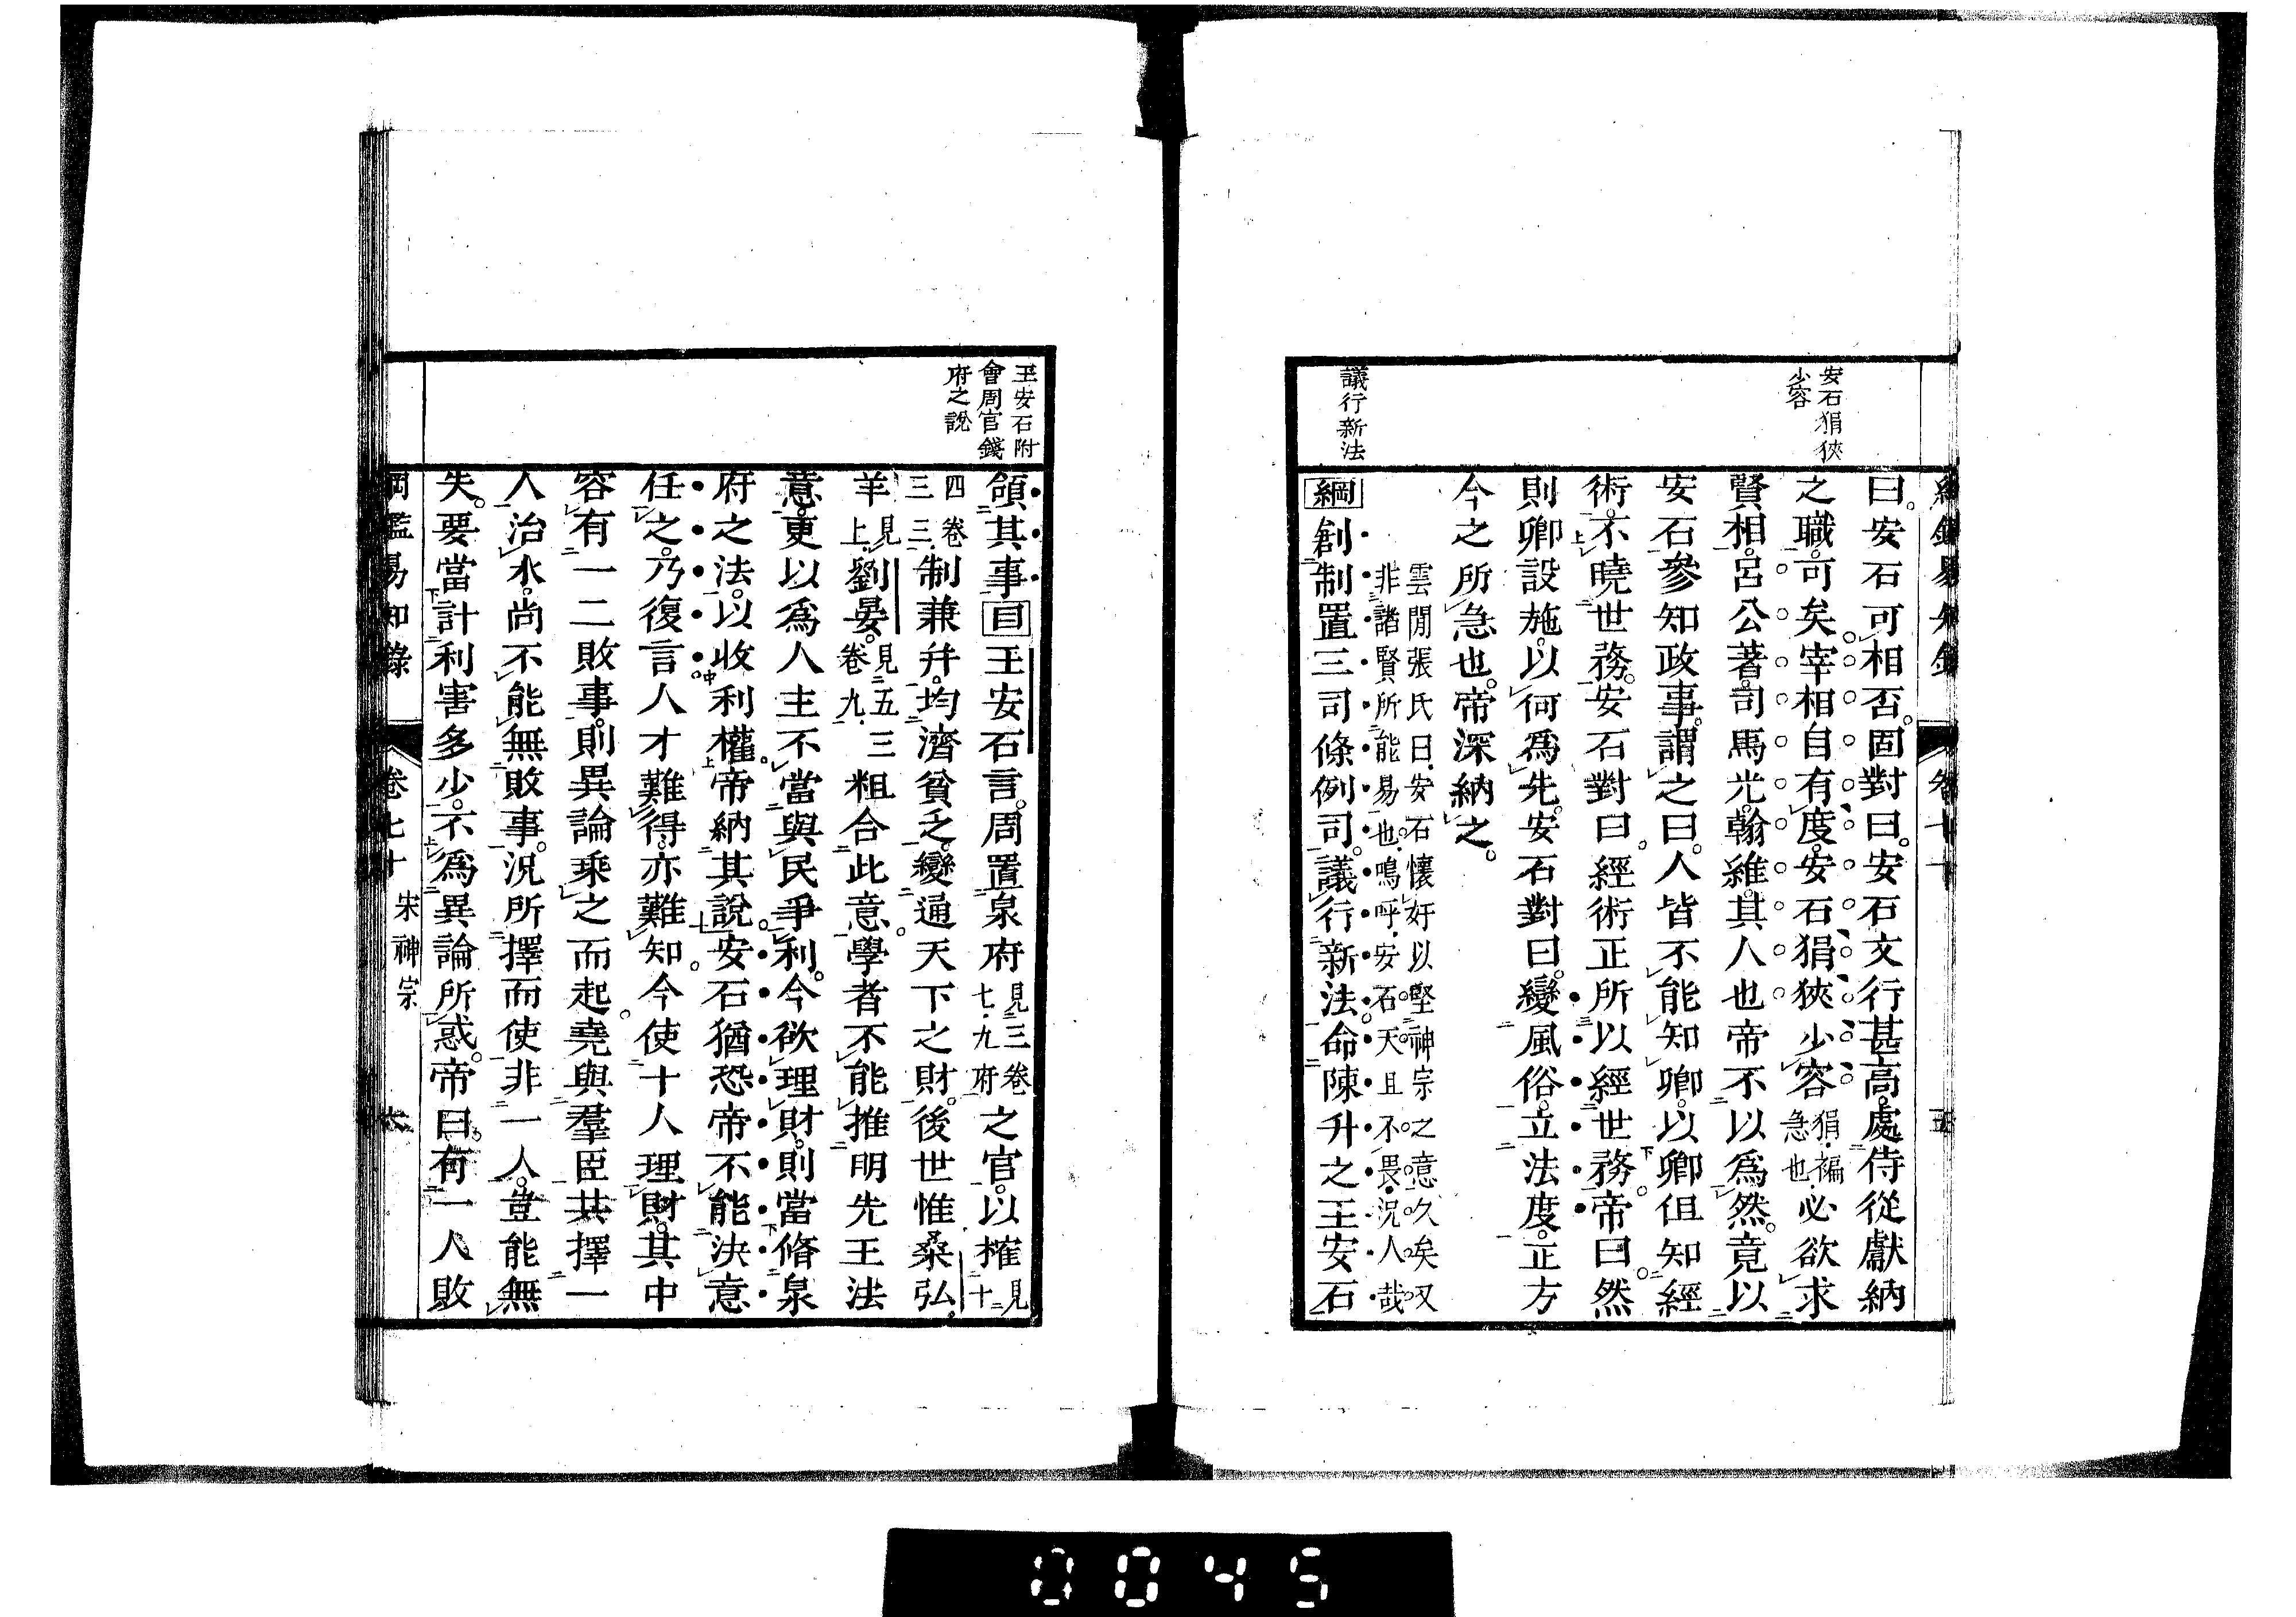 安石狷狹
少容
議行新法
曰。安石可相否。固對曰。安石文行甚高。處侍從獻納
之職。可矣。宰相自有度。安石狷狹少容狷、褊急也、必欲求
賢相。呂公著。司馬光。韓維。其人也。帝不以爲然。竟以
安石參知政事。謂之曰。人皆不能知卿。以卿但知經
術。不曉世務。安石對曰。經術正所以經世務。帝曰。然
則卿設施。以何爲先。安石對曰。變風俗。立法度。正方
今之所急也。帝深納之。
雲閒張氏曰、安石懷奸以堅神宗之意久矣、又
非諸賢所能易也、嗚呼、安石天且不畏、況人哉、
綱創制置三司條例司。議行新法。命陳升之王安石
王安石附
會周官錢
府之說
領其事目王安石言。周置泉府見三卷七、九府之官。以榷見十
四卷三三、制兼幷。均濟貧乏。變通天下之財。後世惟桑弘
羊見上、劉晏。見五卷九、三粗合此意。學者不能推明先王法
意。更以爲人主不當與民爭利。今欲理財。則當脩泉
府之法。以收利權。帝納其說。安石猶恐帝不能決意
任之。乃復言人才難得。亦難知。今使十人理財。其中
容有一二敗事。則異論乘之而起。堯與羣臣共擇一
人治水。尚不能無敗事。況所擇而使非一人。豈能無
失。要當計利害多少。不爲異論所惑。帝曰。有一人敗
綱鑑易知錄
卷七十
宋神宗
0045